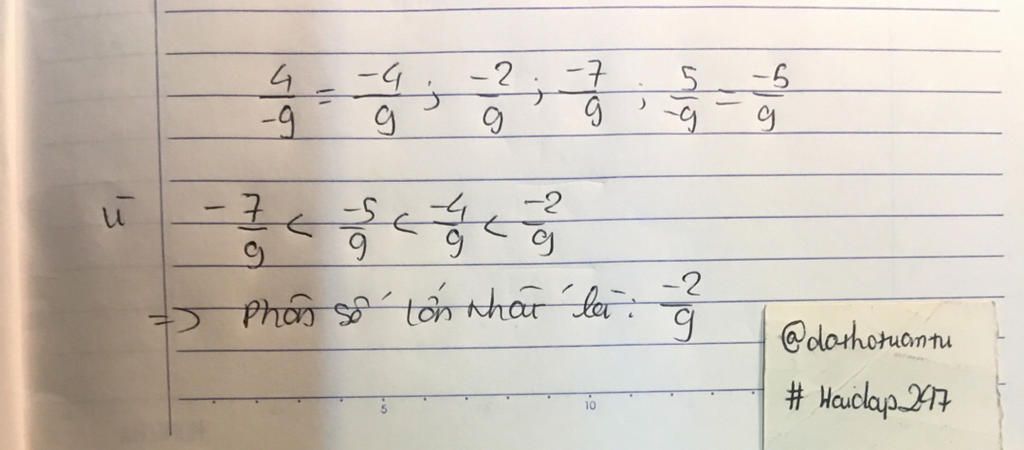 4/-9 = -4/9 ; -2/9 ; -7/9 ; 5/-9 = -5/9
vì -7/9 < -5/9 < -4/9 < -2/9
=> Phân số lớn nhất là: -2/9
@dothotuantu
# Hoidap247
5 10